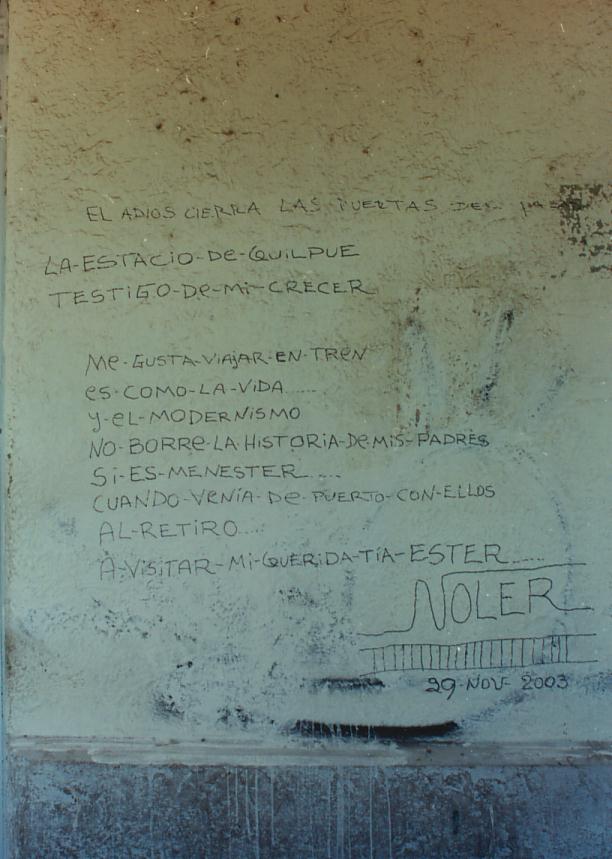 EL ADIOS CIERRA LAS PUERTAS DEL
LA-ESTACIO-De-QUILPUE
TESTIGO-De-Mi-CRECER
Me-GUSTA-ViAjAR-EN-TREN
es-COMO-LA-VIDA......
y-eL-MODERNISMO
NO-BORRe-LA-HISTORIA-DeMIS-PADRES
Si-ES-MENESTER.....
CUANDO-VENIA-De-PUERTO-CON-ELLOS
AL-RETIRO.....
A-VISITAR-Mi-QUERIDA-TIA-ESTER......
NOLER
29-NOV-2003